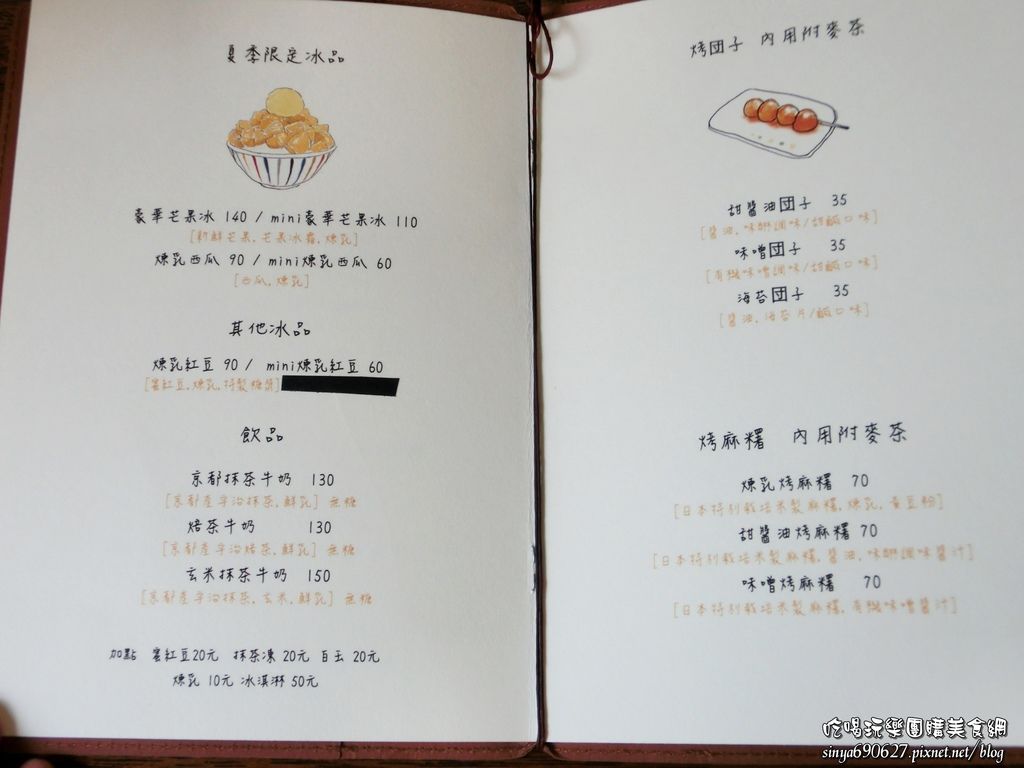 夏季限定冰品
豪華芒果冰 140 / mini豪華芒果冰 110
[新鮮芒果, 芒果冰霜, 煉乳]
煉乳西瓜 90 / mini煉乳西瓜 60
[西瓜, 煉乳]
其他冰品
煉乳紅豆 90 / mini煉乳紅豆 60
[蜜紅豆, 煉乳, 特製糖漿]
飲品
京都抹茶牛奶 130
[京都產宇治抹茶, 鮮乳] 無糖
焙茶牛奶 130
[京都產宇治焙茶, 鮮乳] 無糖
玄米抹茶牛奶 150
[京都產宇治抹茶, 玄米, 鮮乳] 無糖
加點 蜜紅豆20元 抹茶凍 20元 白玉 20元
煉乳 10元 冰淇淋 50元
烤団子 內用附麥茶
甜醬油団子 35
[醬油, 味醂調味/甜鹹口味]
味噌団子 35
[有機味噌調味/甜鹹口味]
海苔団子 35
[醬油, 海苔片/鹹口味]
烤麻糬 內用附麥茶
煉乳烤麻糬 70
[日本特別栽培米製麻糬, 煉乳, 黃豆粉]
甜醬油烤麻糬 70
[日本特別栽培米製麻糬, 醬油, 味醂調味醬汁]
味噌烤麻糬 70
[日本特別栽培米製麻糬, 有機味噌醬汁]
吃喝玩樂團購美食網
sinya690627.pixnet.net/blog